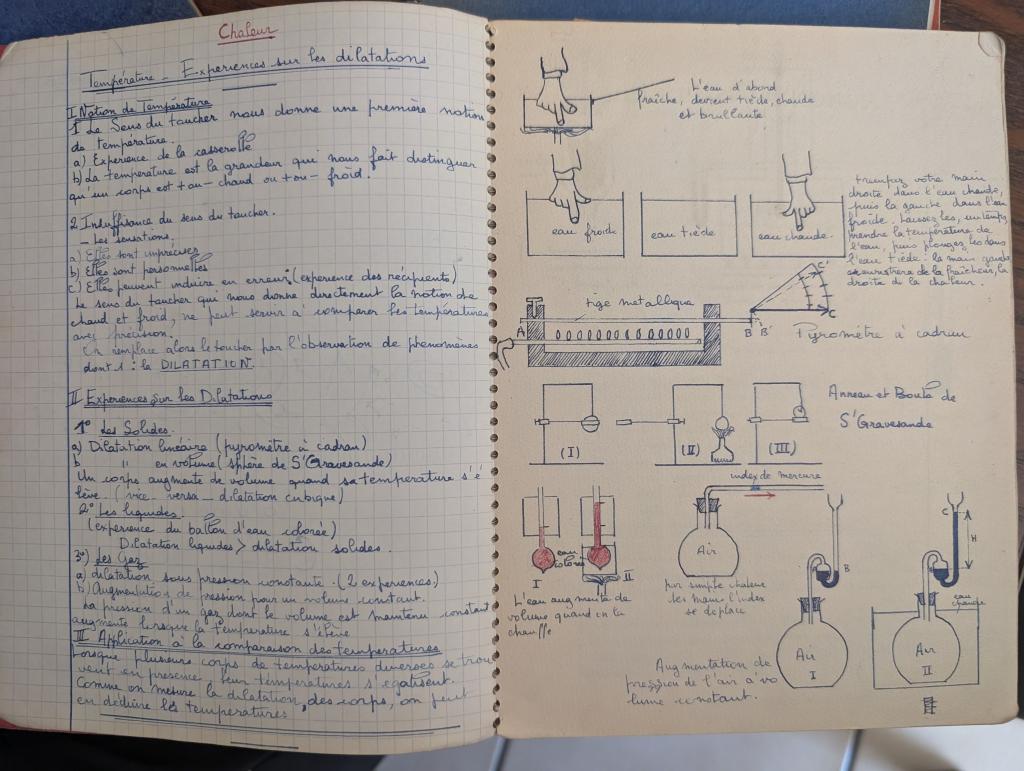 Chaleur
Température - Experiences sur les dilatations
I Notion de Température
1 Le Sens du toucher nous donne une première notion
de température.
a) Experience de la casserolle
b) La température est la grandeur qui nous fait distinguer
qu'un corps est + ou - chaud ou + ou - froid.
2 Insuffisance du sens du toucher.
- Les sensations.
a) Elles sont imprécises
b) Elles sont personnelles
c) Elles peuvent induire en erreur : (experience des récipients)
Le sens du toucher qui nous donne directement la notion de
chaud et froid, ne peut servir à comparer les températures
avec précision.
On remplace alors le toucher par l'observation de phenomènes
dont 1 : la DILATATION.
II Experiences sur les Dilatations
1° Les Solides.
a) Dilatation linéaire (pyromètre à cadran)
b " en volume (sphère de S'Gravesande)
Un corps augmente de volume quand sa temperature s'é
lève. (vice - versa - dilatation cubique)
2° Les liquides.
(experience du ballon d'eau colorée)
Dilatation liquides > dilatation solides.
3°) Les Gaz
a) dilatation sous pression constante. (2 experiences)
b) Augmentation de pression pour un volume constant.
La pression d'un gaz dont le volume est maintenu constant
augmente lorsque la température s'élève
III Application à la comparaison des temperatures
Lorsque plusieurs corps de températures diverses se trou
vent en presence, leur températures s'égalisent.
Comme on mesure la dilatation des corps, on peut
en déduire les temperatures.
L'eau d'abord
fraîche, devient tiède, chaude
et brullante
eau froide
eau tiède
eau chaude
trempez votre main
droite dans l'eau chaude,
puis la gauche dans l'eau
froide. Laissez les, un temps
prendre la température de
l'eau, puis plongez les dans
l'eau tiède : la main gauche
droite de la chaleur.
tige metallique
A
B B'
C'
C
Pyromètre à cadran
(I)
(II)
(III)
Anneau et Boule de
S'Gravesande
index de mercure
eau
colorée
I
II
L'eau augmente de
volume quand on la
chauffe
Air
par simple chaleur
des mains l'index
se deplace
B
Air
I
C
H
eau
chaude
Air
II
Augmentation de
pression de l'air à vo
lume constant.